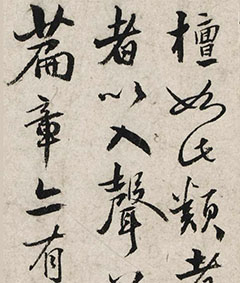 檀如此類者
者以入聲
篇章亦有